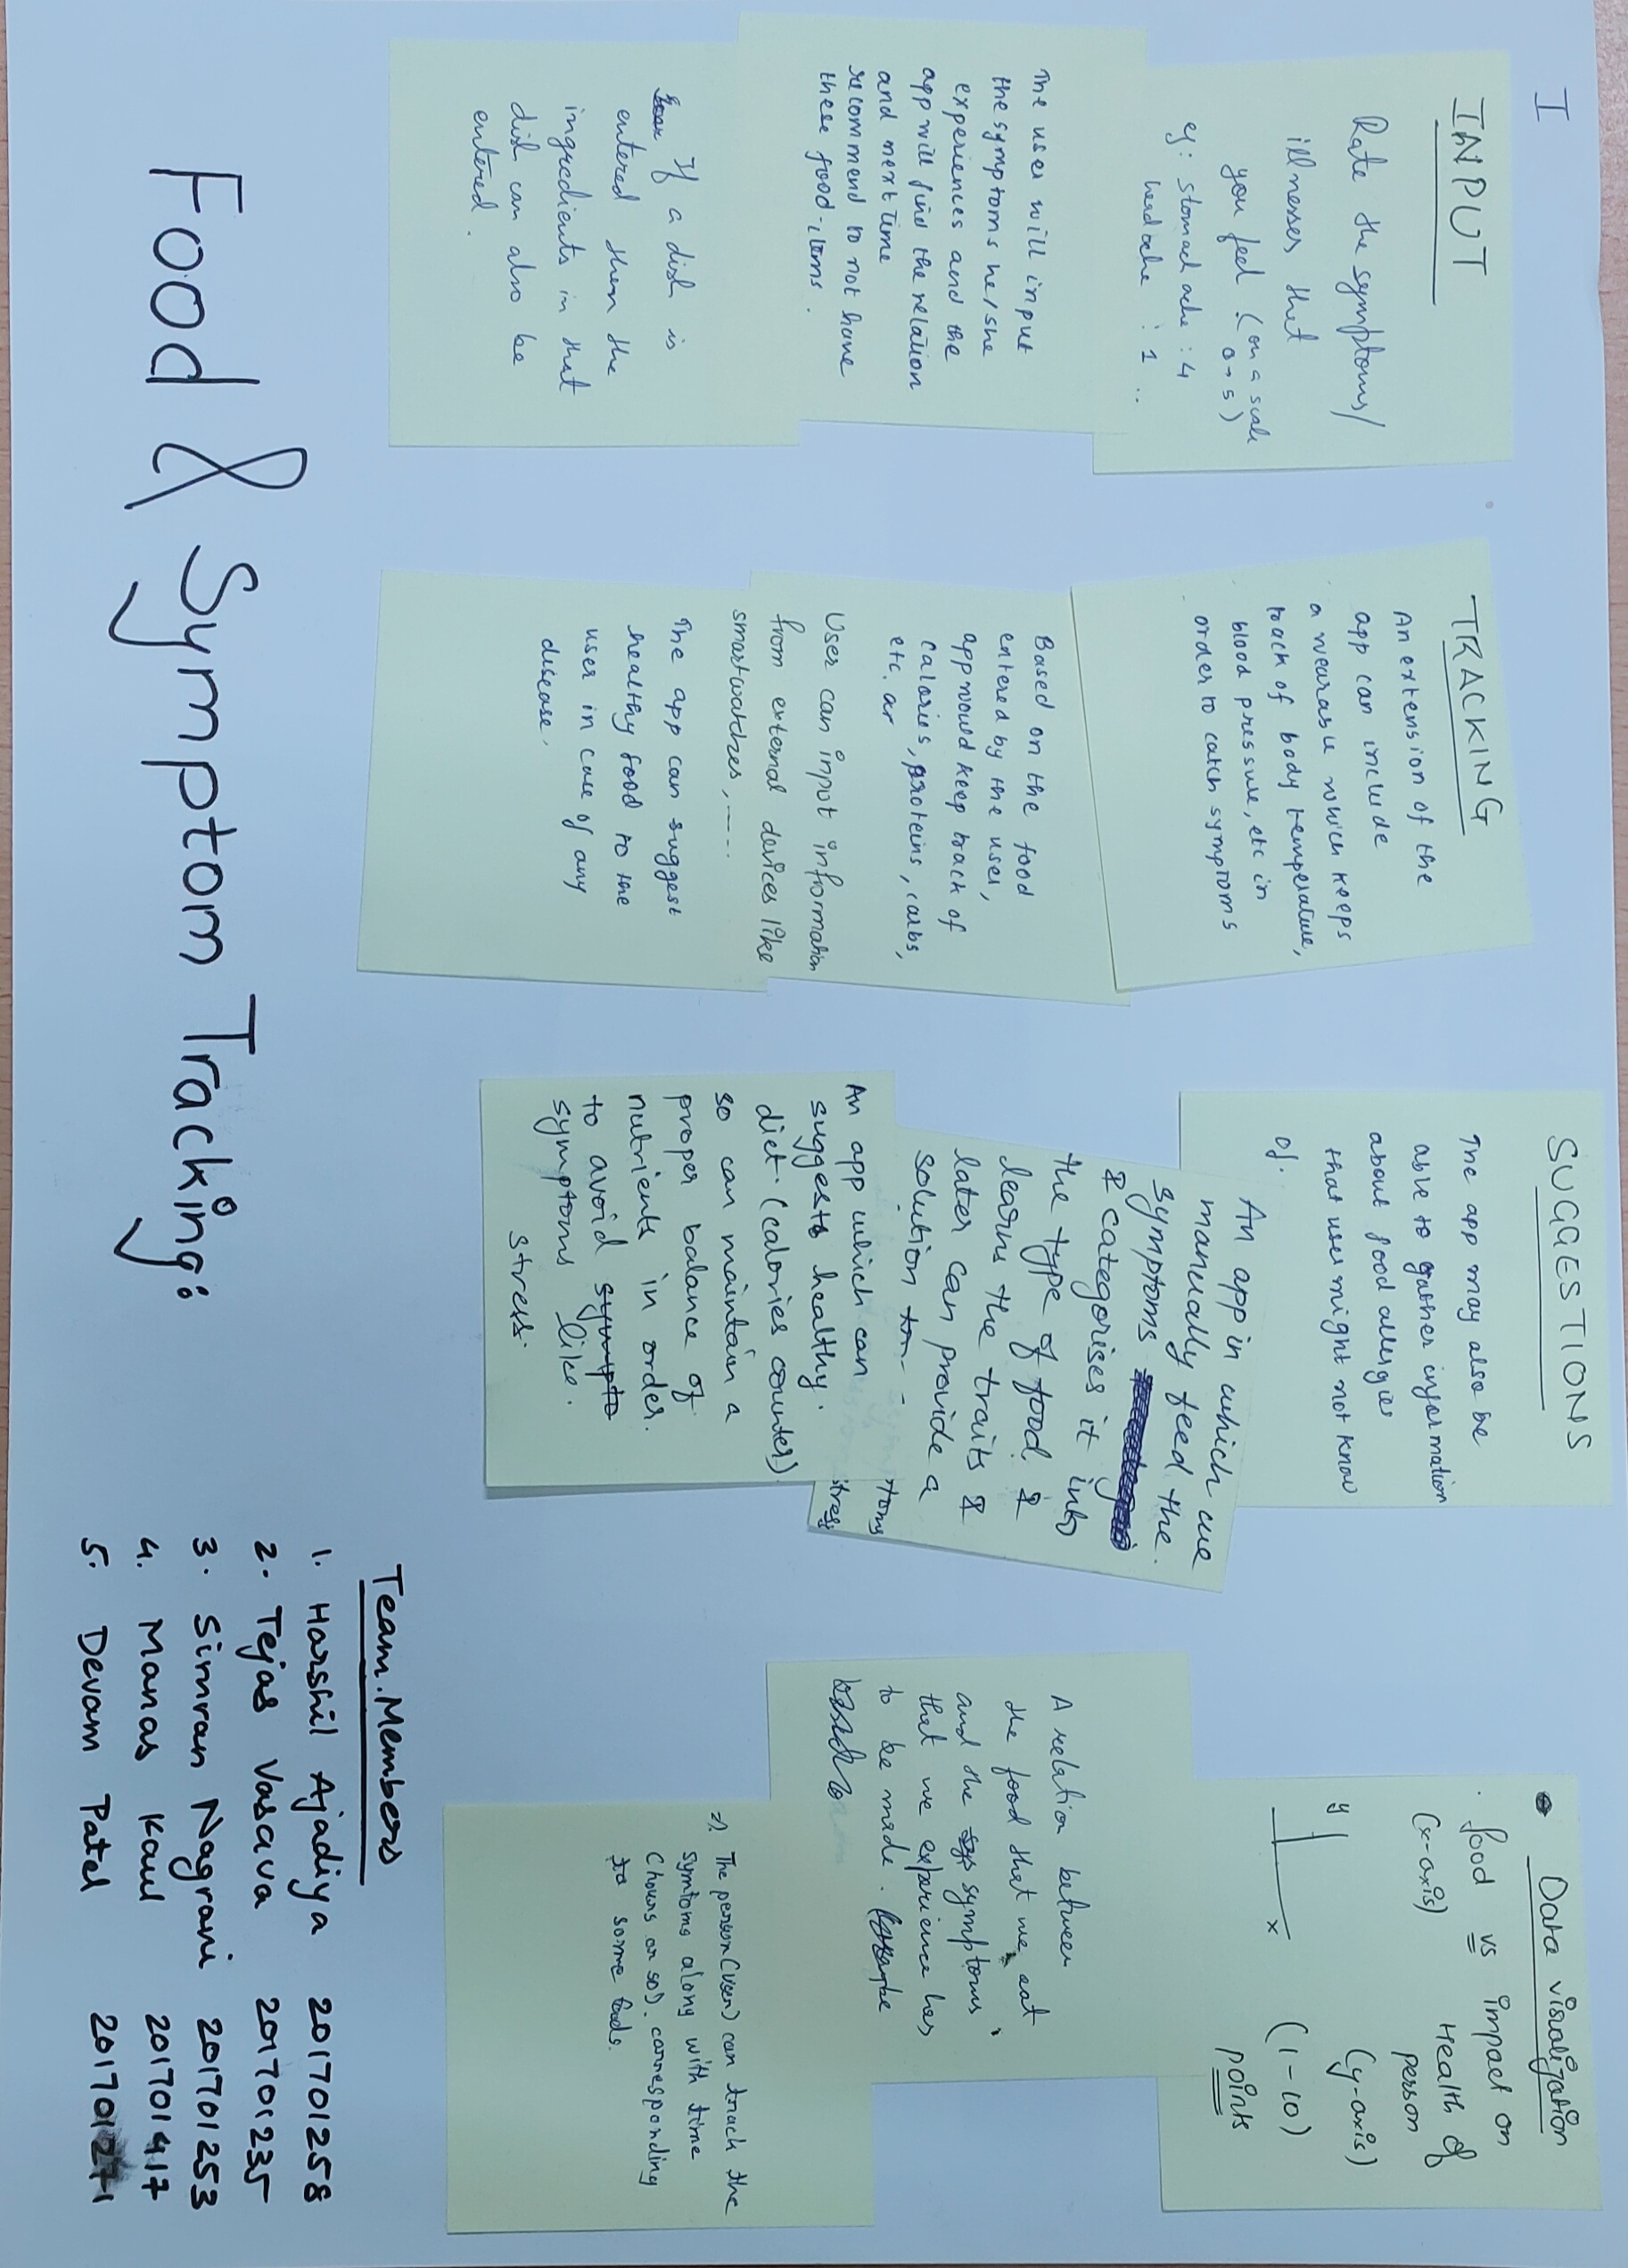 I
INPUT
Rate the symptoms/
illnesses that
you feel (on a scale
0→5)
eg: stomach ache : 4
headache : 1 ..
The user will input
the symptoms he/she
experiences and the
app will find the relation
and next time
recommend to not have
these food-items.
If a dish is
entered then the
ingredients in that
dish can also be
entered.
TRACKING
An extension of the
app can include
a wearable which keeps
track of body temperature,
blood pressure, etc in
order to catch symptoms
Based on the food
entered by the user,
app would keep track of
calories, proteins, carbs,
etc. or
User can input information
from external devices like
smartwatches, ----
The app can suggest
healthy food to the
user in case of any
disease.
SUGGESTIONS
The app may also be
able to gather information
about food allergies
that user might not know
of.
An app in which we
manually feed the
symptoms
& categorises it into
the type of food &
learns the traits &
later can provide a
solution
toms
stress
An app which can
suggests healthy
diet. (calories counter)
so can maintain a
proper balance of
nutrients in order
to avoid sympto
symptoms like
stress.
Data visualization
food vs impact on
(x-axis) Health of
person
(y-axis)
y
x
(1-10)
points
A relation between
the food that we eat
and the symptoms
that we experience has
to be made.
⇒ The person (user) can track the
symtoms along with time
(hours or so). corresponding
to some foods.
Food & Symptom Tracking:
Team Members
1. Harshil Ajadiya 201701258
2. Tejas Vasava 201701235
3. Simran Nagrani 201701253
4. Manas Kaul 201701417
5. Devam Patel 201701271